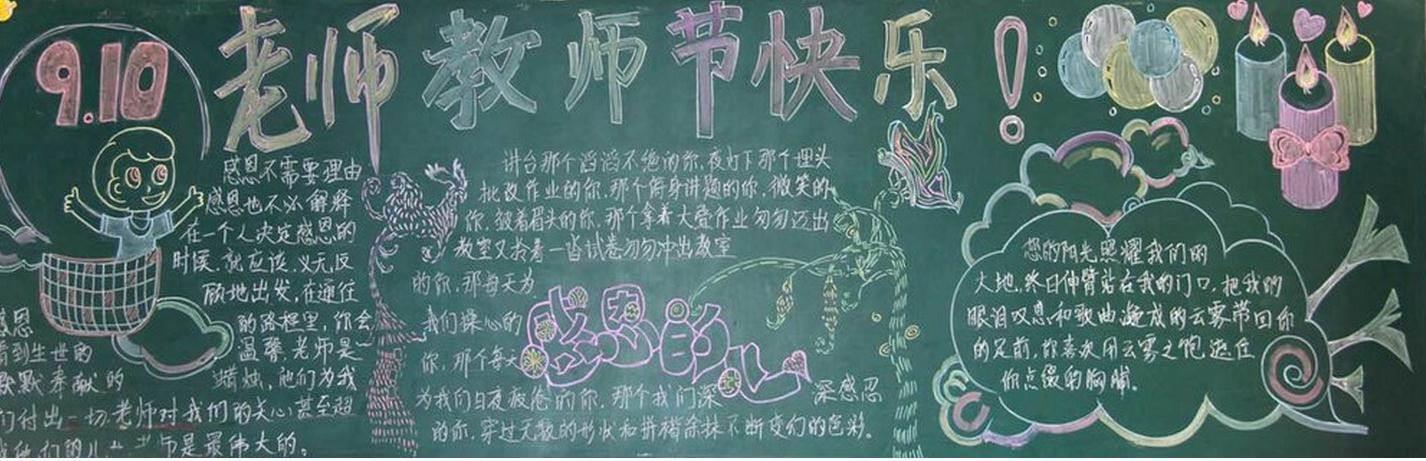 9.10
老师教师节快乐!
感恩不需要理由
感恩也不必解释
在一个人决定感恩的
时候,就应该义无反
顾地出发,在通往
感恩的路程里,你会
看到生世的温馨,老师是
默默奉献的蜡烛,他们为我
们付出一切.老师对我们的关心甚至超
师是最伟大的。
讲台那个滔滔不绝的你,夜灯下那个埋头
批改作业的你,那个俯身讲题的你,微笑的
你,皱着眉头的你,那个拿着大叠作业匆匆迈出
教室又拎着一沓试卷匆匆冲出教室
的你,那每天为
我们操心的
你,那个每天
为我们日夜疲惫的你,那个我们深深感恩
的你,穿过无数的形状和拼楷涂抹不断变幻的色彩。
感恩的心
您的阳光照耀我们的
大地,终日伸臂站在我的门口,把我的
眼泪叹息和歌曲变成的云雾带回你
的足前,你喜欢用云雾之袍遮住
你点缀的胸脯。